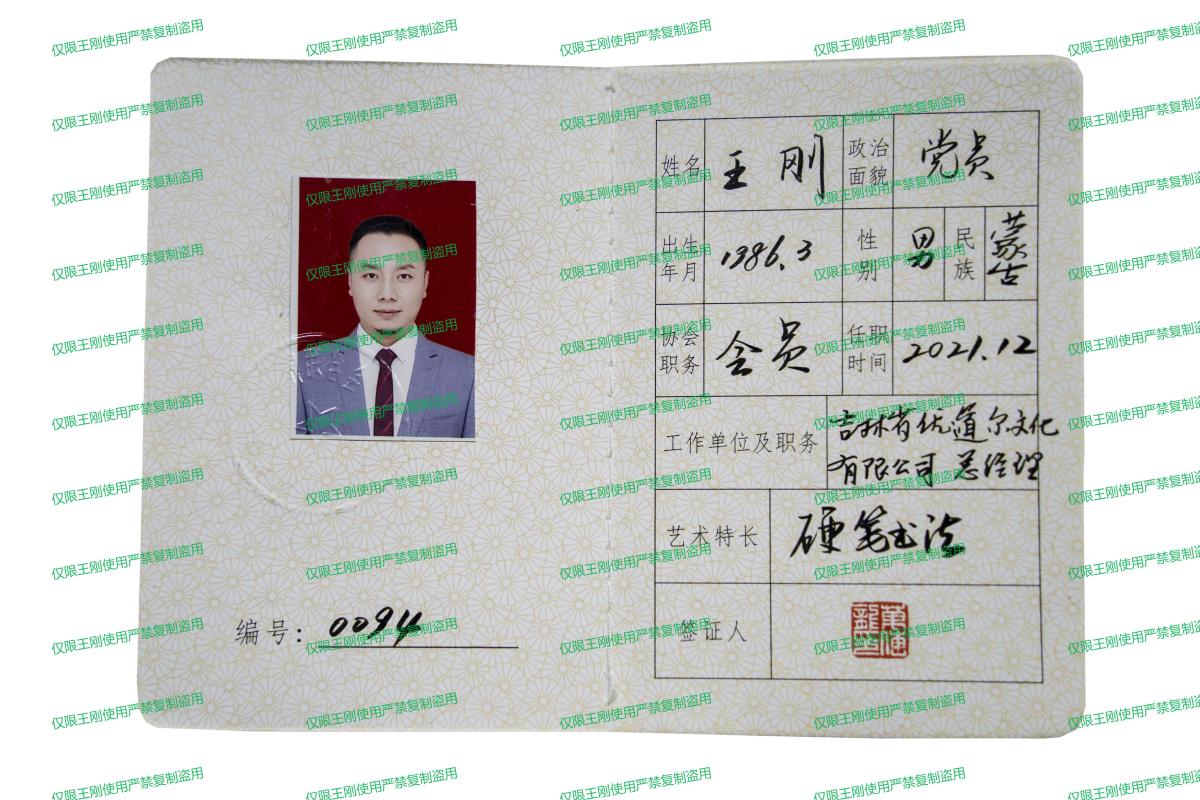 仅限王刚使用严禁复制盗用
姓名 王刚 政治面貌 党员
出生年月 1986.3 性别 男 民族 蒙古
协会职务 会员 任职时间 2021.12
工作单位及职务 吉林省优道尔文化
有限公司 总经理
艺术特长 硬笔书法
签证人
编号: